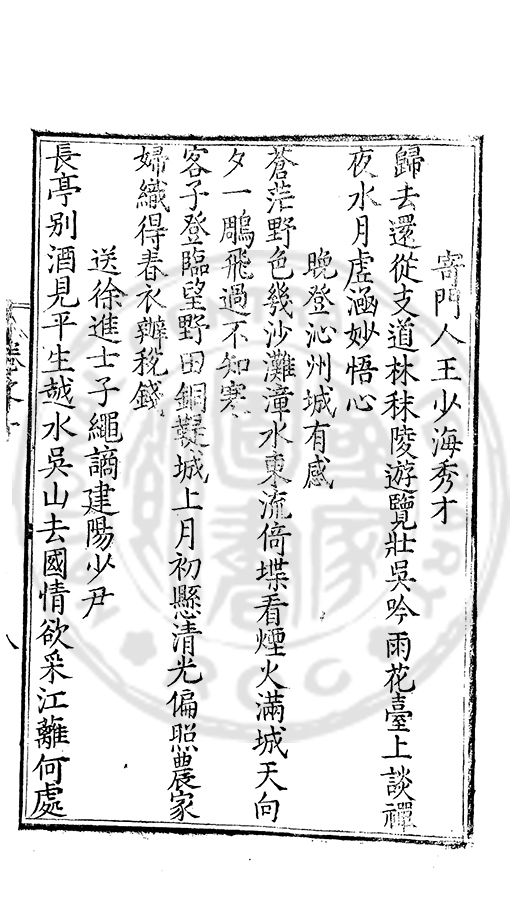 寄門人王少海秀才
歸去還從支道林秣陵遊覽壯吳吟雨花臺上談禪
夜水月虛涵妙悟心
晚登沁州城有感
蒼茫野色幾沙灘漳水東流倚堞看煙火滿城天向
夕一鵰飛過不知寒
客子登臨望野田銅鞮城上月初懸清光偏照農家
婦織得春衣辦稅錢
送徐進士子繩謫建陽少尹
長亭別酒見平生越水吳山去國情欲采江蘺何處